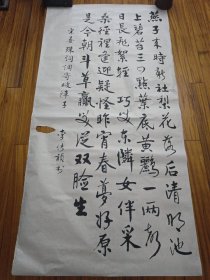 燕子来时新社梨花落后清明池
上碧苔三四点叶底黄鹂一两声
日长飞絮轻 巧笑东隣女伴采
桑径里逢迎疑怪昨宵春梦好原
是今朝斗草赢笑从双脸生
宋晏殊词词寄破阵子
李
书